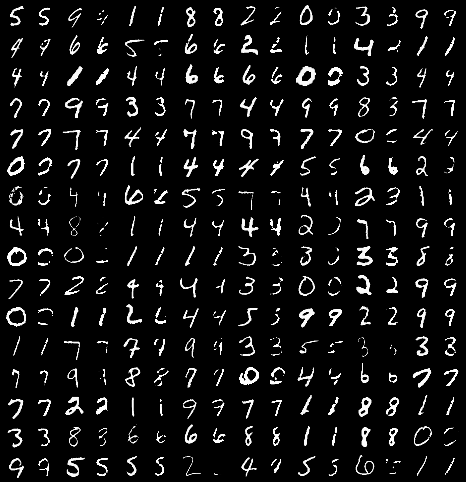 5 5 9 9 1 1 8 8 2 2 0 0 3 3 9 9
9 9 6 6 5 5 6 6 2 2 1 1 4 1 1
4 4 1 1 4 4 6 6 6 6 0 0 3 3 4 4
7 7 9 9 3 3 7 7 4 4 9 9 8 3 7 7
7 7 7 7 4 4 7 7 9 7 7 7 0 4 4
0 0 7 7 1 1 4 4 4 4 5 5 6 6 2 2
0 0 4 4 6 6 5 5 7 7 4 4 2 3 1 1
4 4 8 1 1 4 4 4 4 2 7 7 9 9
0 0 0 1 1 1 1 3 3 3 3 3 8 8
7 7 2 2 4 4 4 4 3 3 0 0 2 2 9 9
0 1 1 2 2 4 4 5 5 9 9 2 2 9 9
1 1 7 7 7 7 9 9 3 3 5 5 3 3 3
7 7 9 9 8 8 7 7 0 0 4 4 6 6 7 7
7 7 2 2 1 1 9 9 7 7 1 1 8 8 1 1
3 3 8 8 6 6 6 6 8 8 1 1 8 8 0
9 9 5 5 5 5 2 4 4 5 5 6 1 1